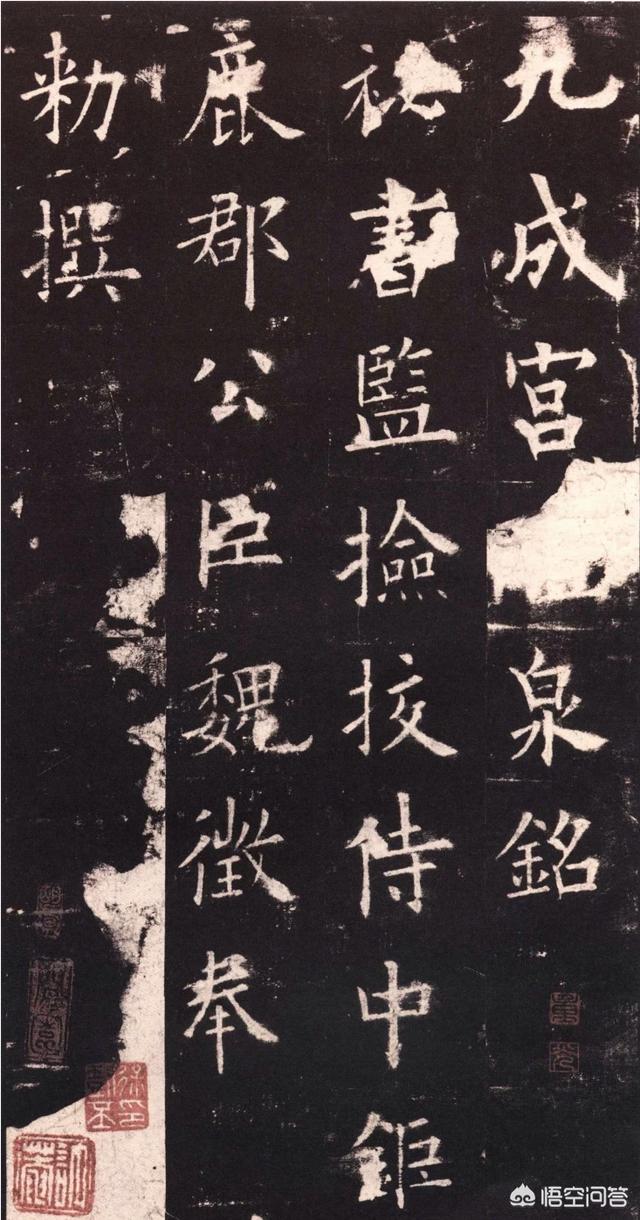 九成宫泉銘
祕書監撿挍侍中鉅
鹿郡公臣魏徵奉
勑撰
悟空问答